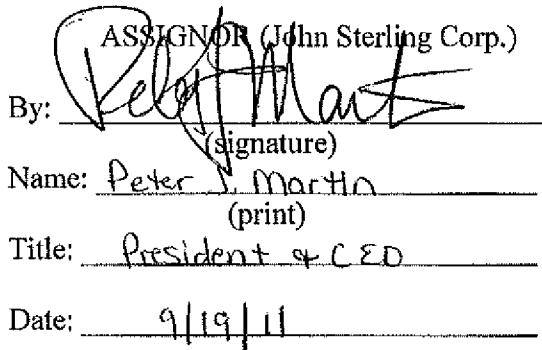 ASSIGNOR (John Sterling Corp.)
By: Peter J Mart
(signature)
Name: Peter J. Martin
(print)
Title: President & CEO
Date: 9/19/11